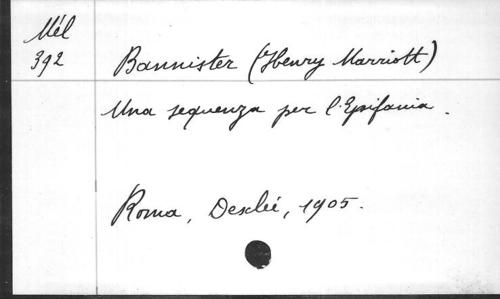 Mél
392
Bannister (Henry Marriott)
Una sequenza per l'Epifania.
Roma, Desclée, 1905.